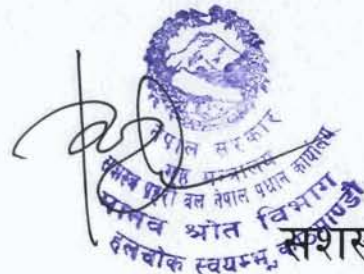 नेपाल सरकार
गृह मन्त्रालय
सशस्त्र प्रहरी बल नेपाल प्रधान कार्यालय
मानव श्रोत विभाग
हलचोक स्वयम्भू, काठमाण्डौ
सशस